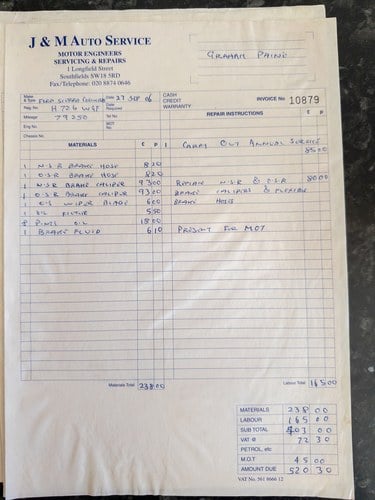 J & M AUTO SERVICE
MOTOR ENGINEERS
SERVICING & REPAIRS
1 Longfield Street
Southfields SW18 5RD
Fax/Telephone: 020 8874 0646
GRAHAM PAINE
Make & Type FORD SIERRA Date 27 SEP 06 CASH
CREDIT
WARRANTY
INVOICE No 10879
Reg. No. H 726 Date Required
Mileage 79250 Tel. No.
Eng No. MOT
Chassis No.
REPAIR INSTRUCTIONS £ p
MATERIALS £ p
CARRY OUT ANNUAL SERVICE
85 00
1 N/S/R BRAKE HOSE 8 20
1 O/S/R BRAKE HOSE 8 20
1 N/S/R BRAKE CALIPER 93 00 REPLACE N/S/R & O/S/R 80 00
1 O/S/R BRAKE CALIPER 93 00 BRAKE CALIPERS & FLEXIBLE
1 O/S WIPER BLADE 6 00 BRAKE HOSES
1 OIL FILTER 5 50
8 PINTS OIL 18 00
1 BRAKE FLUID 6 10 PRESENT FOR MOT
Materials Total 238 00
Labour Total 165 00
MATERIALS 238 00
LABOUR 165 00
SUB TOTAL 403 00
VAT @ 72 30
PETROL, etc
M.O.T 45 00
AMOUNT DUE 520 30
VAT No. 561 0666 12